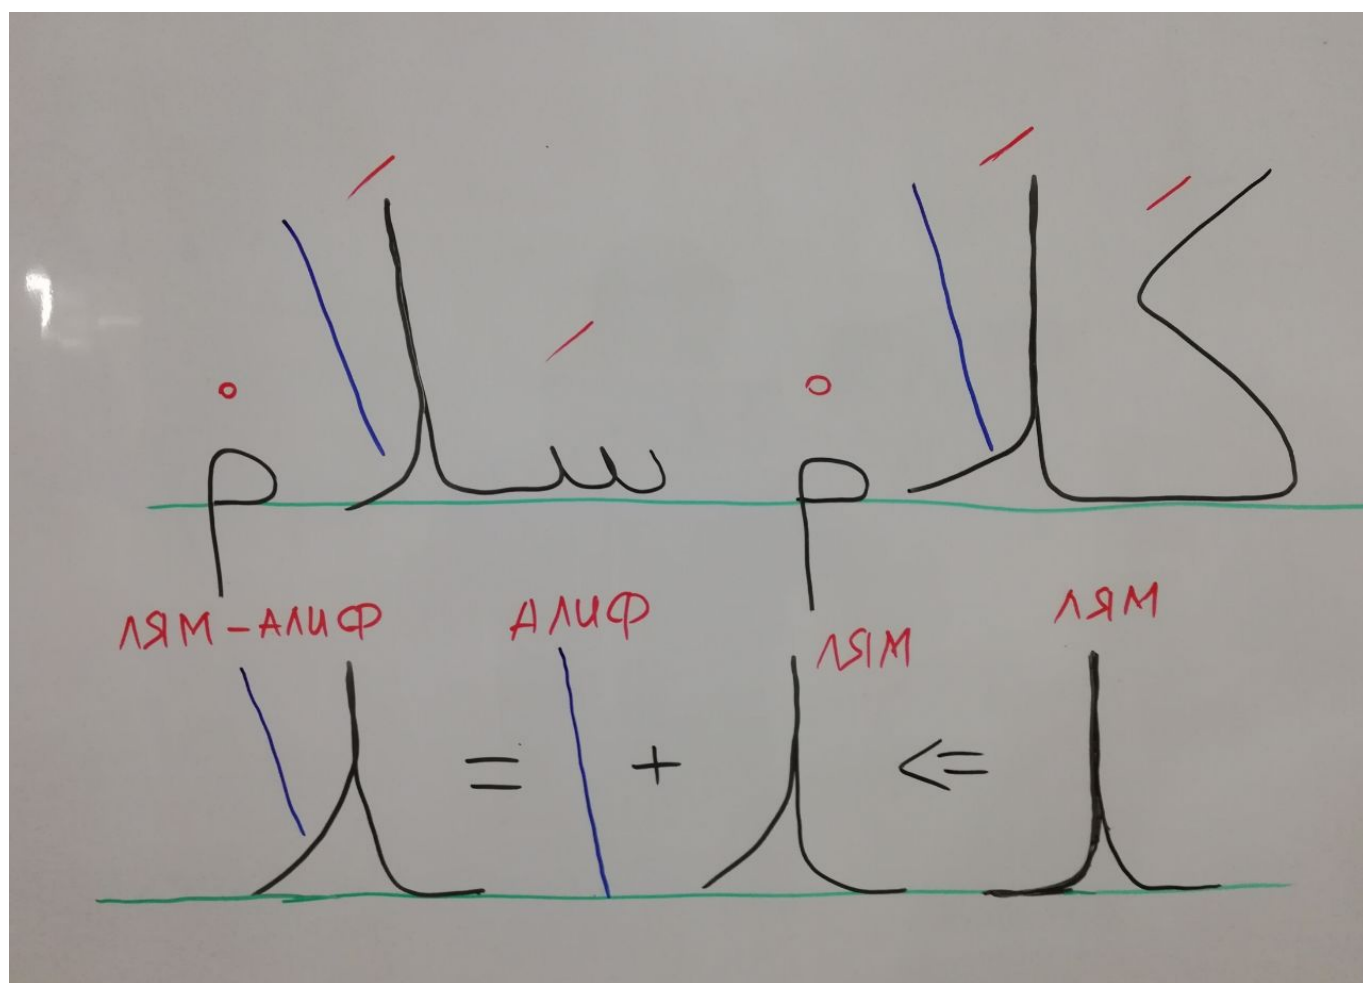 كَلَامْ سَلَامْ
ЛЯМ-АЛИФ АЛИФ ЛЯМ ЛЯМ
لا = ا + ل <= ل